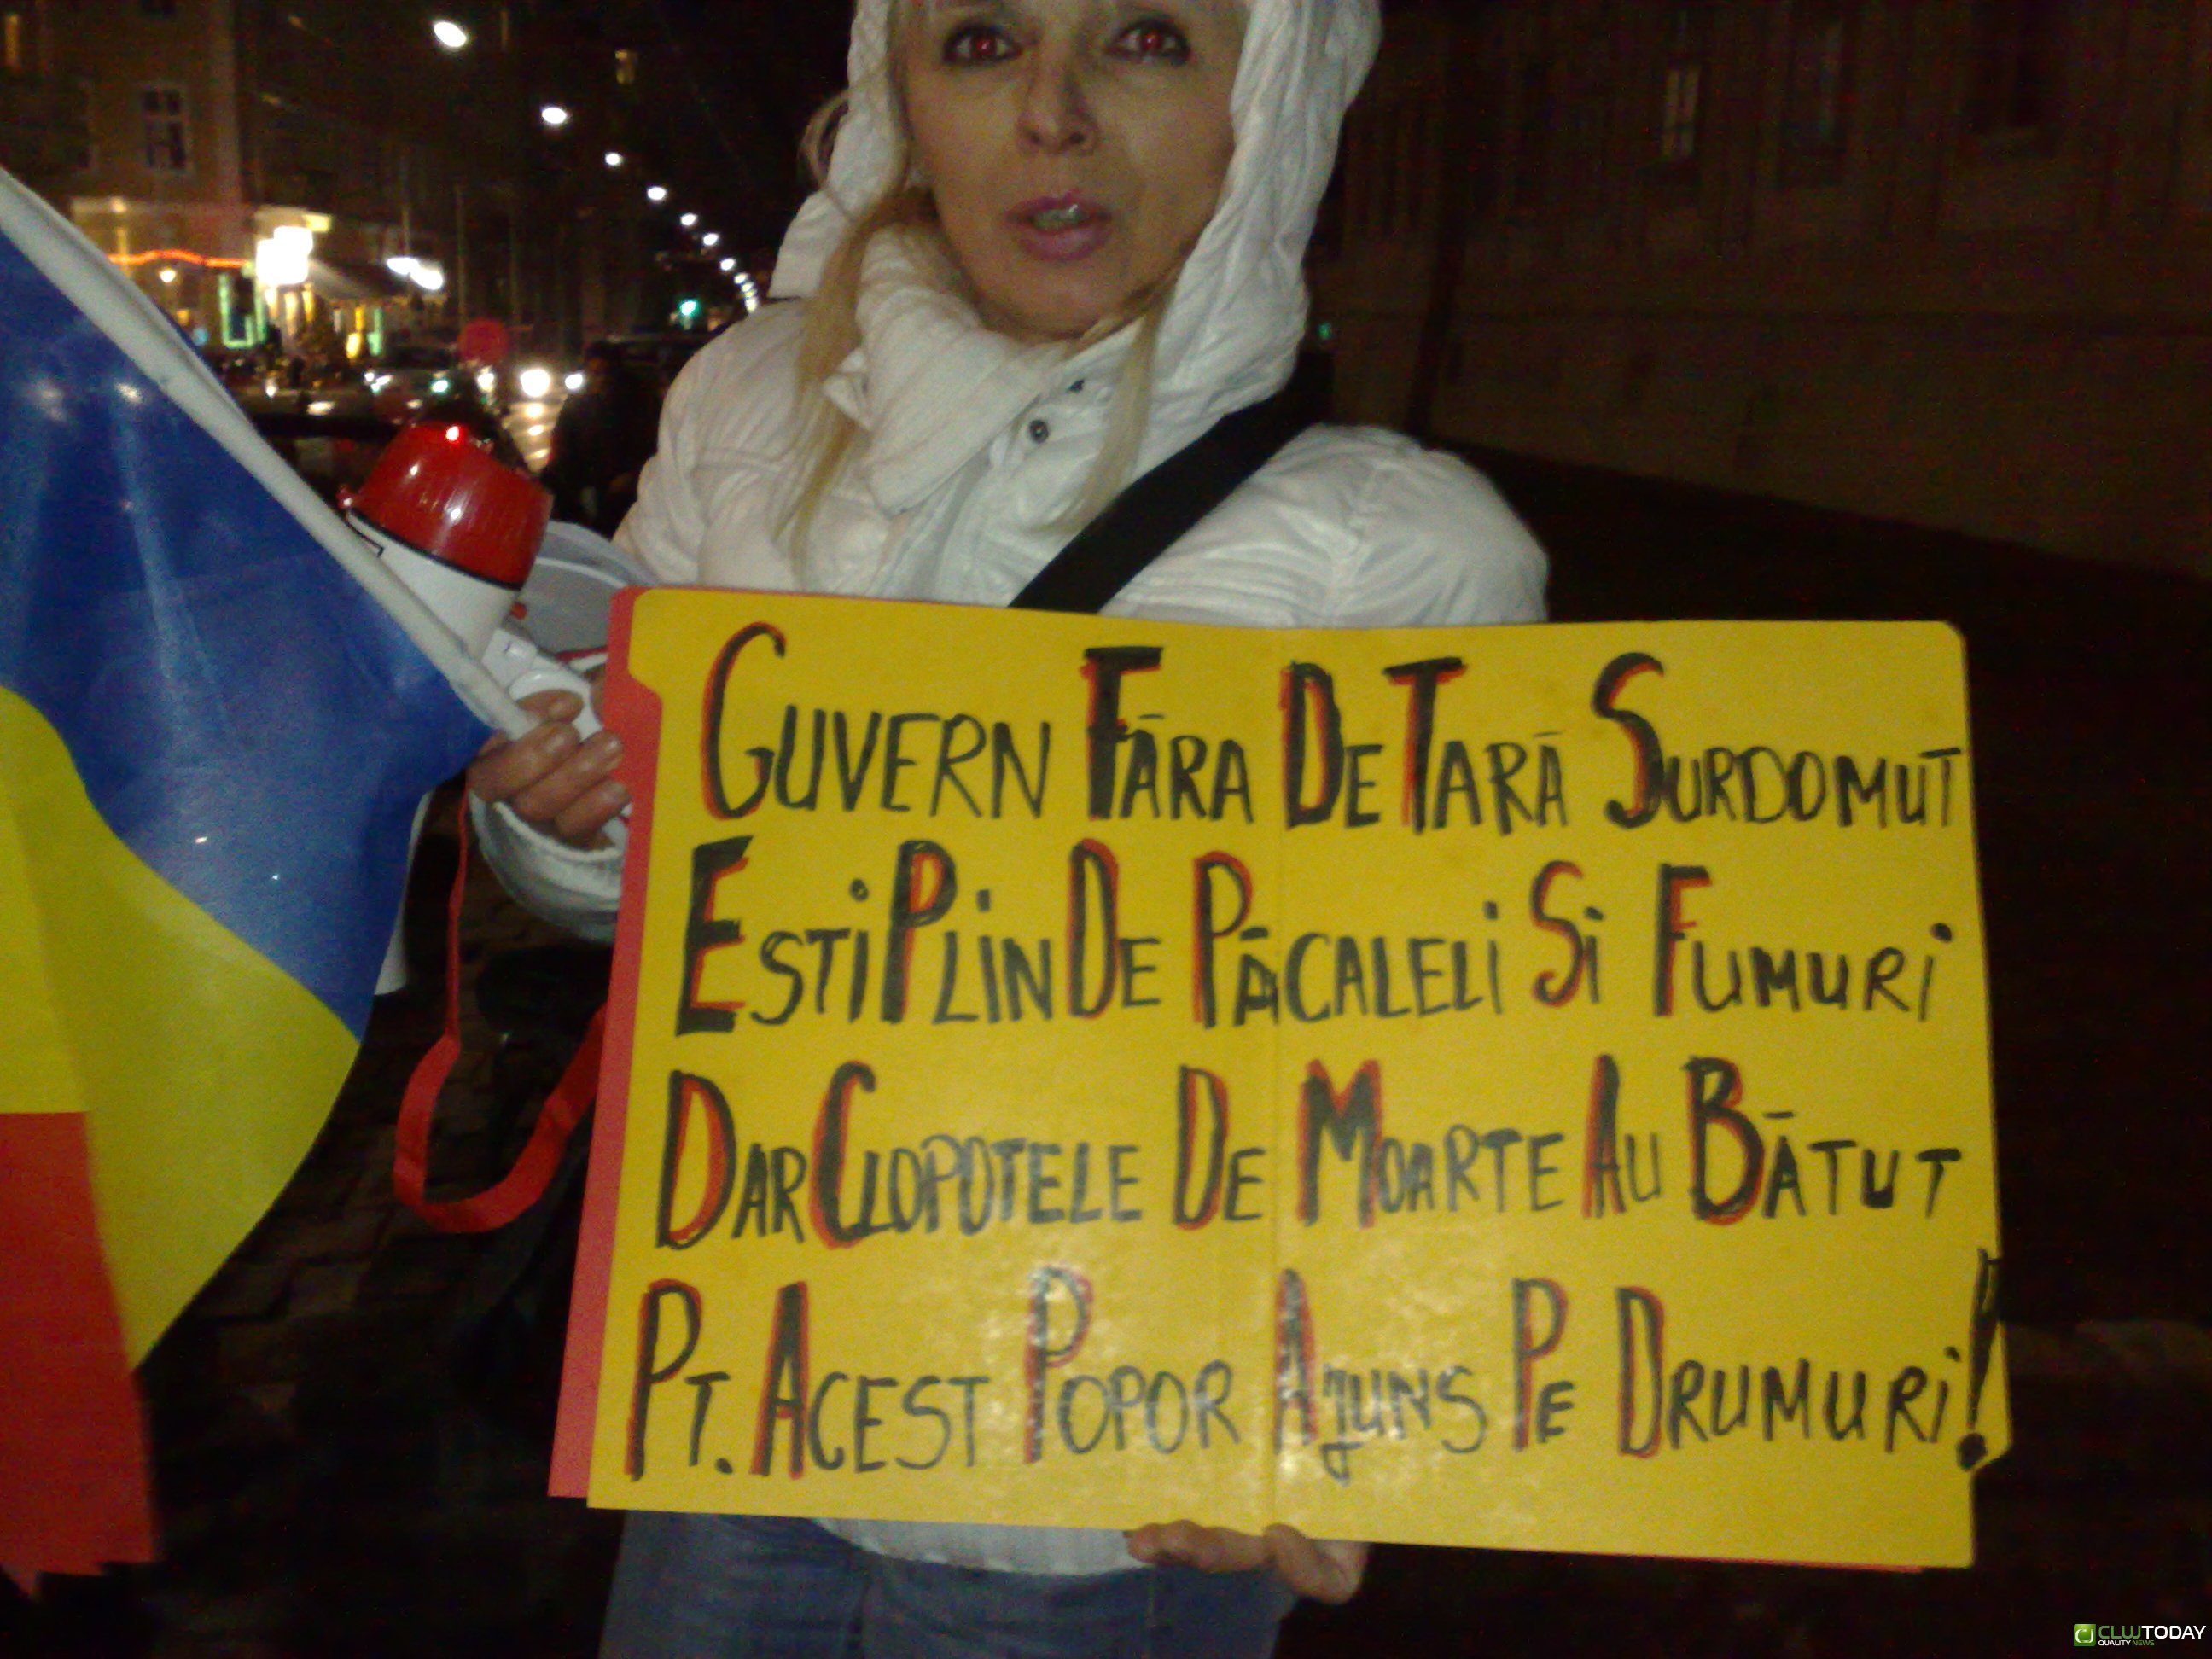 GUVERN FĀRA DE TARĀ SURDOMUT
ESTI PLIN DE PĀCALELI SI FUMURI
DAR CLOPOTELE DE MOARTE AU BĀTUT
PT. ACEST POPOR AJUNS PE DRUMURI!
CLUJTODAY
QUALITY NEWS